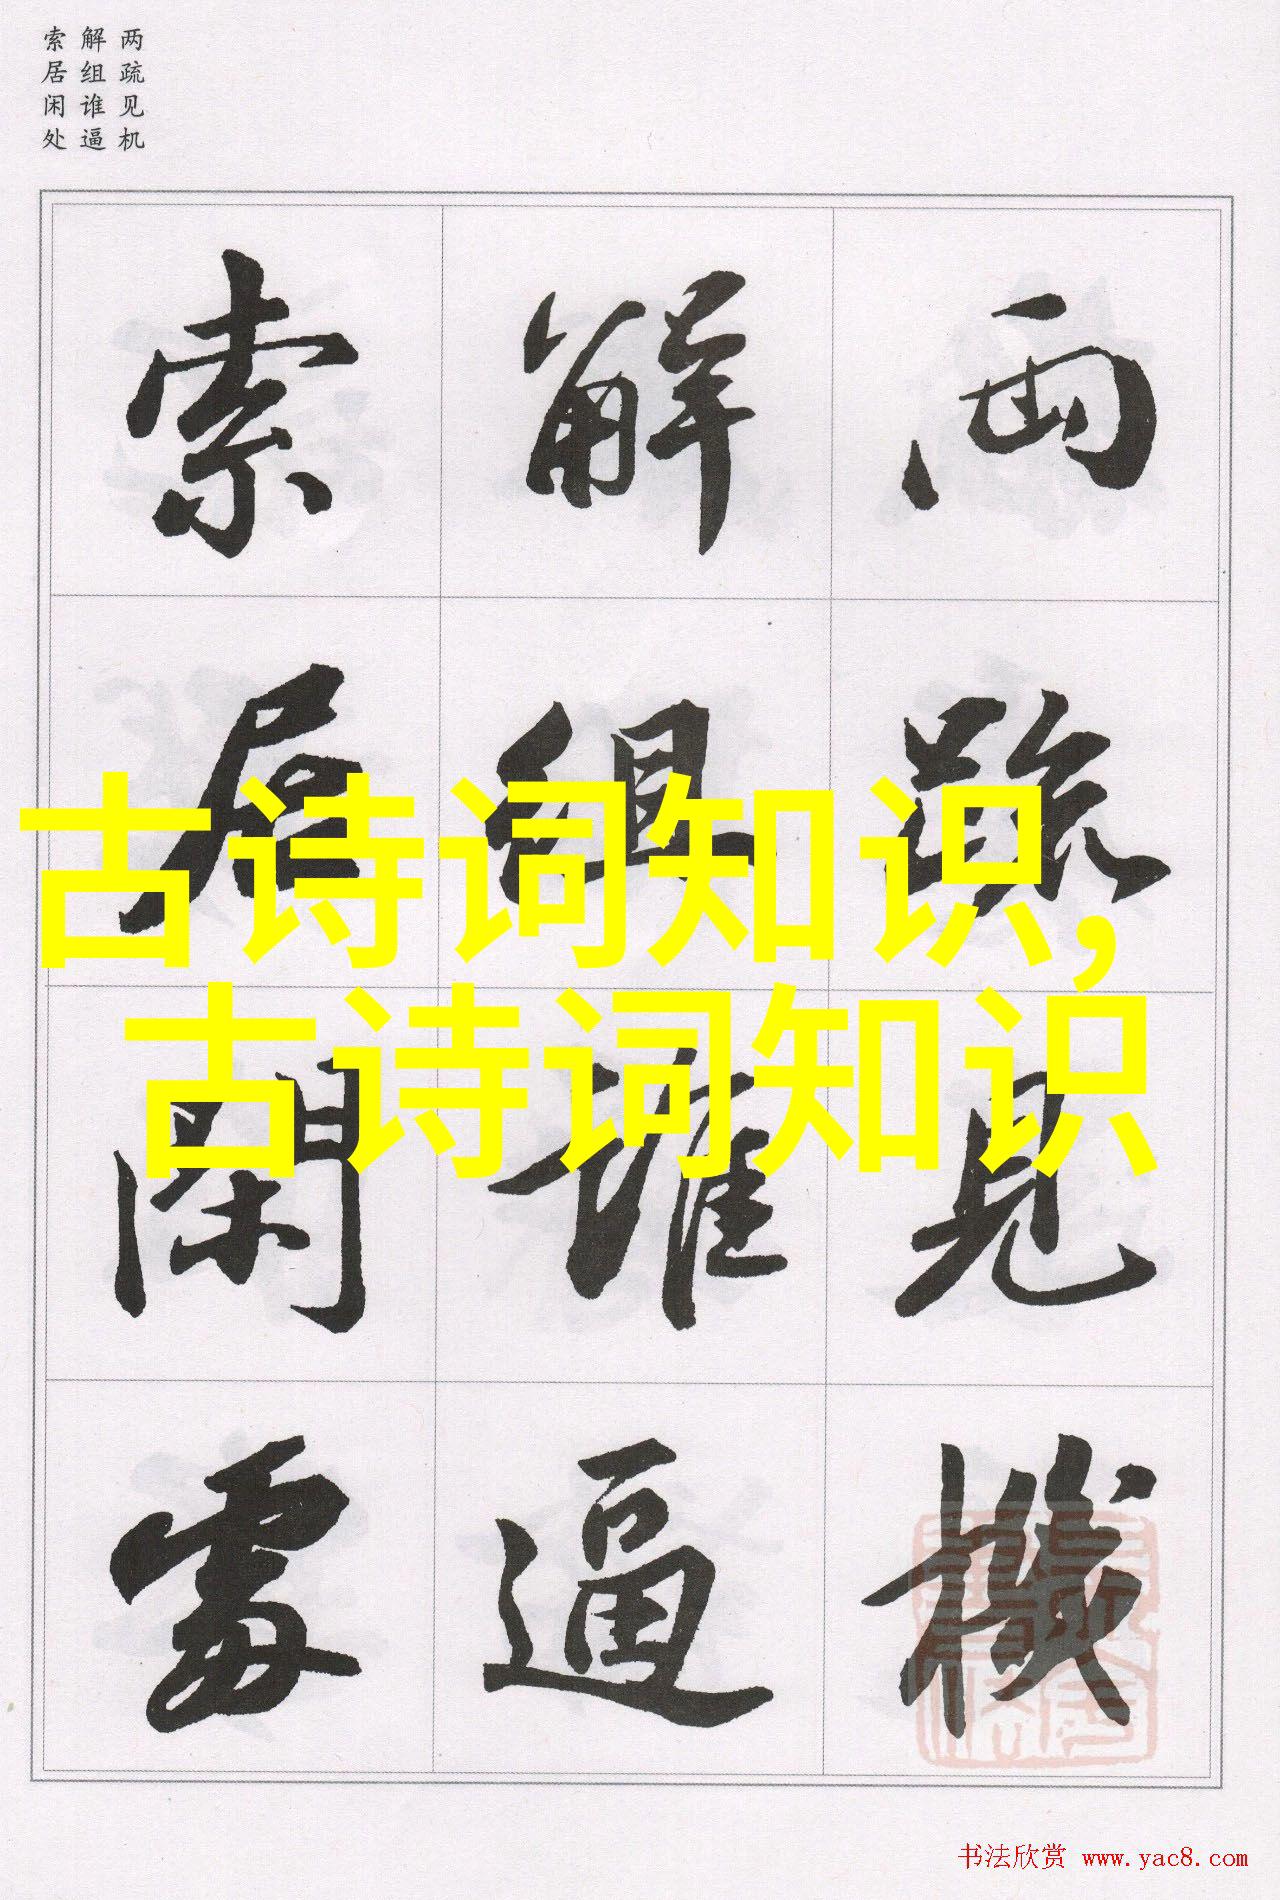 两疏见机
解组谁逼
索居闲处
兩疏見機
解組誰逼
索居閑處
古诗词知识,
古诗词知识
书法欣赏 www.yac8.com